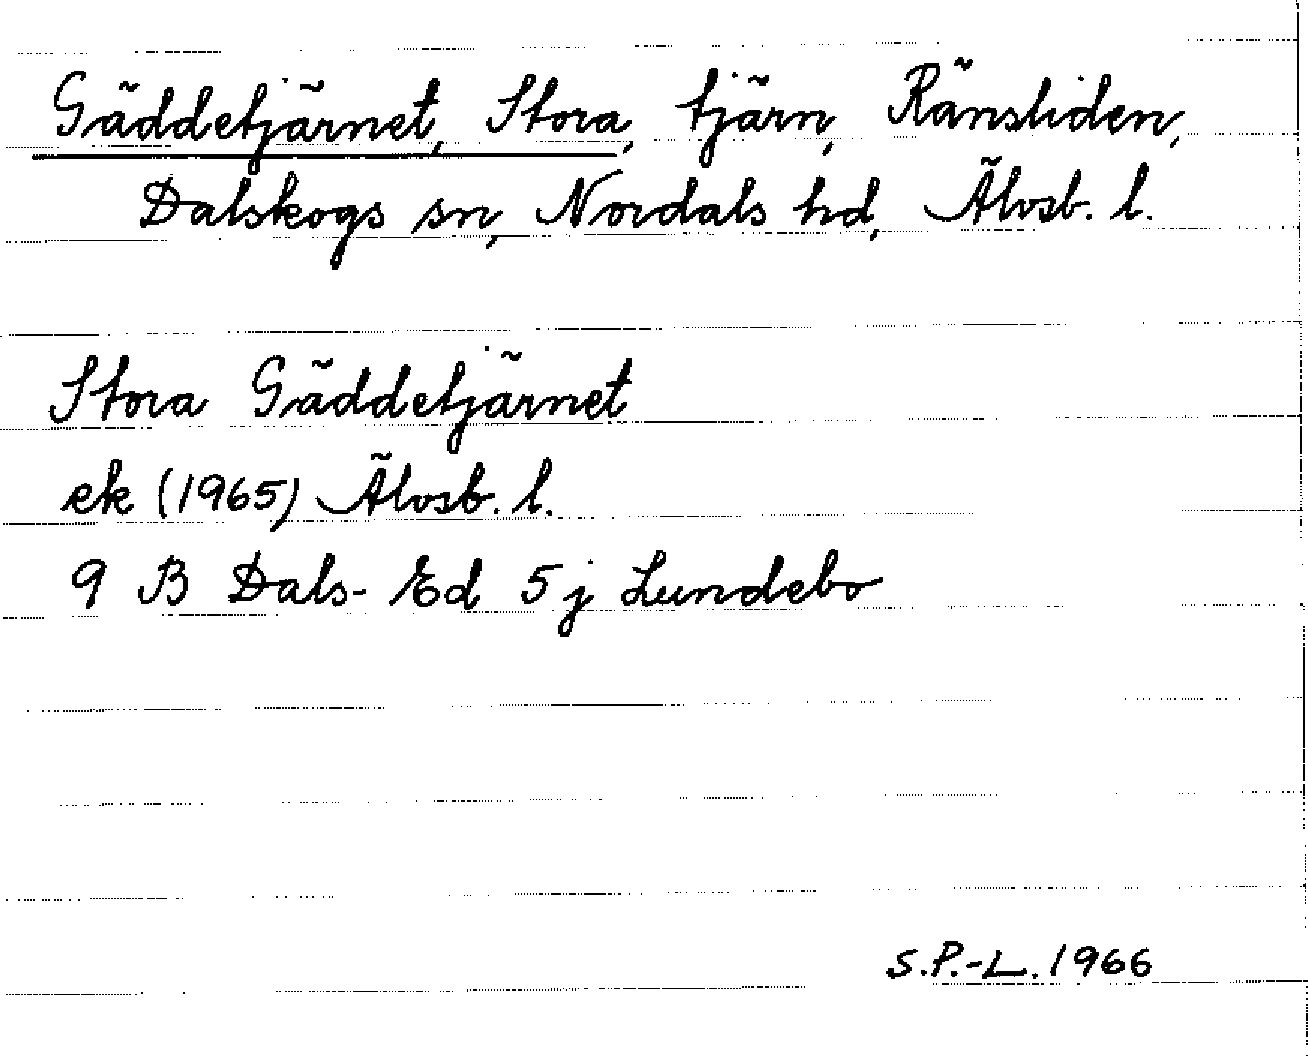 Gäddetjärnet, Stora, tjärn, Ränsliden,
Dalskogs sn, Nordals hd, Älvsb. l.
Stora Gäddetjärnet
ek (1965) Älvsb. l.
9 B Dals-Ed 5 j Lundebo
S.P.-L. 1966